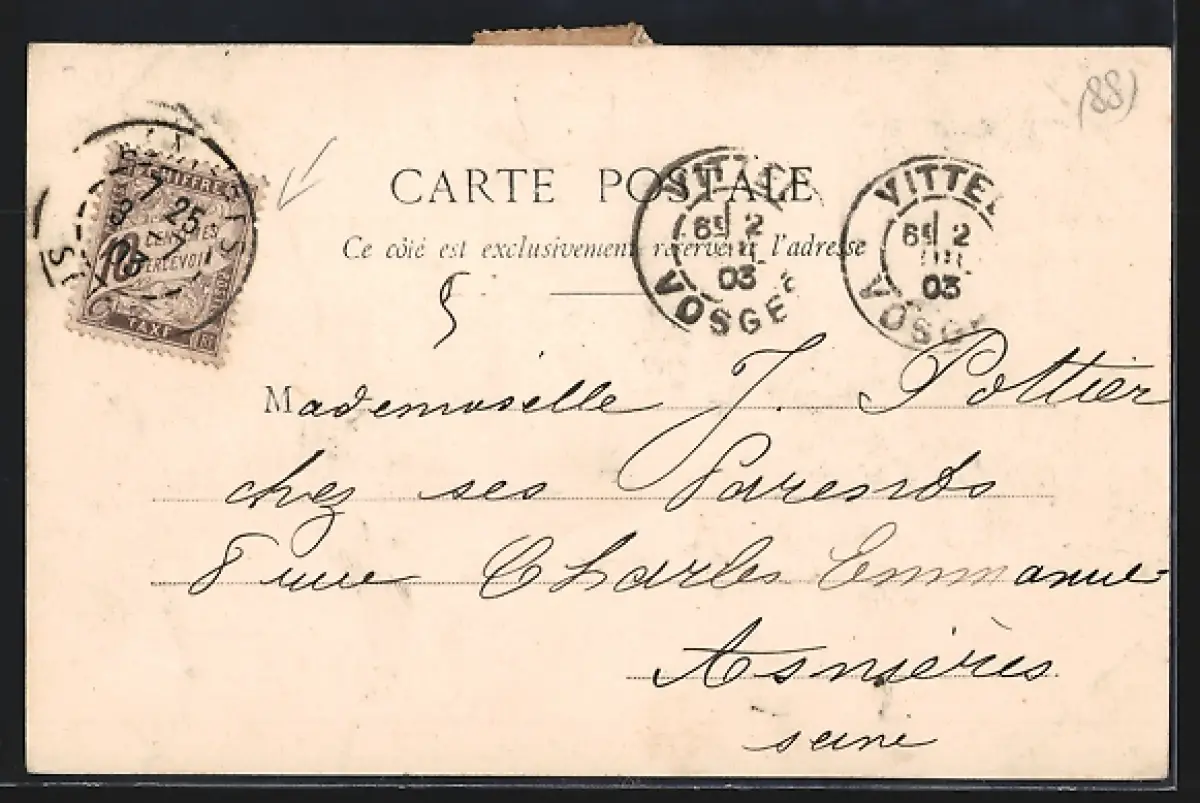 (88)
CARTE POSTALE
Ce côté est exclusivement réservé à l'adresse
CHIFFRE
10
CENTIMES
PERCEVOIR
TAXE
7
25
03
VITTEL
6E 2
03
VOSGES
VITTEL
6E 2
03
VOSG
5
Mademoiselle J. Pottier
chez ses Parents
8 rue Charles Emmanuel
Asnières
seine